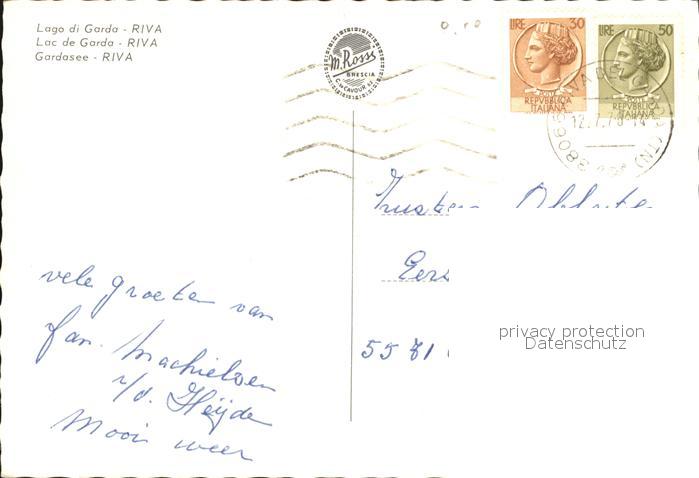 Lago di Garda - RIVA
Lac de Garda - RIVA
Gardasee - RIVA
M. Rossi
BRESCIA
C. CAVOUR
LIRE 30
REPVBBLICA
ITALIANA
LIRE 50
REPVBBLICA
ITALIANA
38066
12.7.7
(TN)
vele groeten van
fam. Machielsen
v/d. Heijde
Mooi weer
privacy protection
Datenschutz